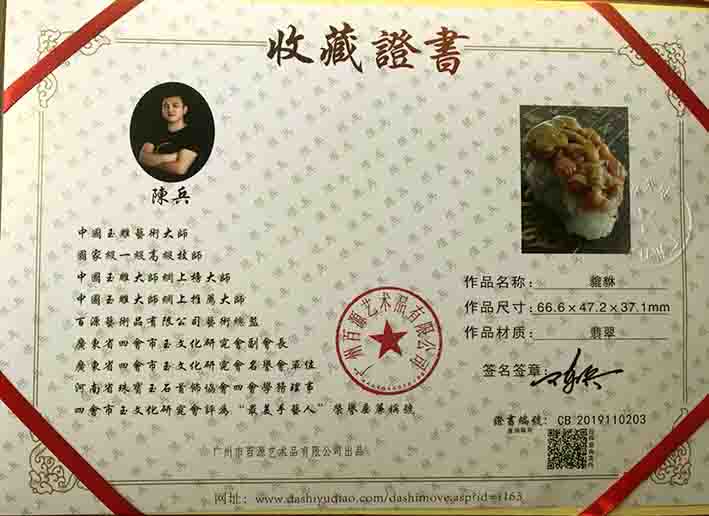 收藏證書
陳兵
中國玉雕藝術大師
國家級一級高級技師
中國玉雕大師網上榜大師
中國玉雕大師網上推薦大師
百源藝術品有限公司藝術總監
廣東省四會市玉文化研究會副會長
廣東省四會市玉文化研究會名譽會單位
河南省珠寶玉石首飾協會四會學務理事
四會市玉文化研究會評為“最美手藝人”榮譽座藩稱號
广州市百源艺术品有限公司出品
广州百源艺术品有限公司
作品名称：貔貅
作品尺寸：66.6×47.2×37.1mm
作品材质：翡翠
签名签章：
證書編號：CB 2019110203
网址：www.dashiyudiao.com/dashimove.asp?id=1163